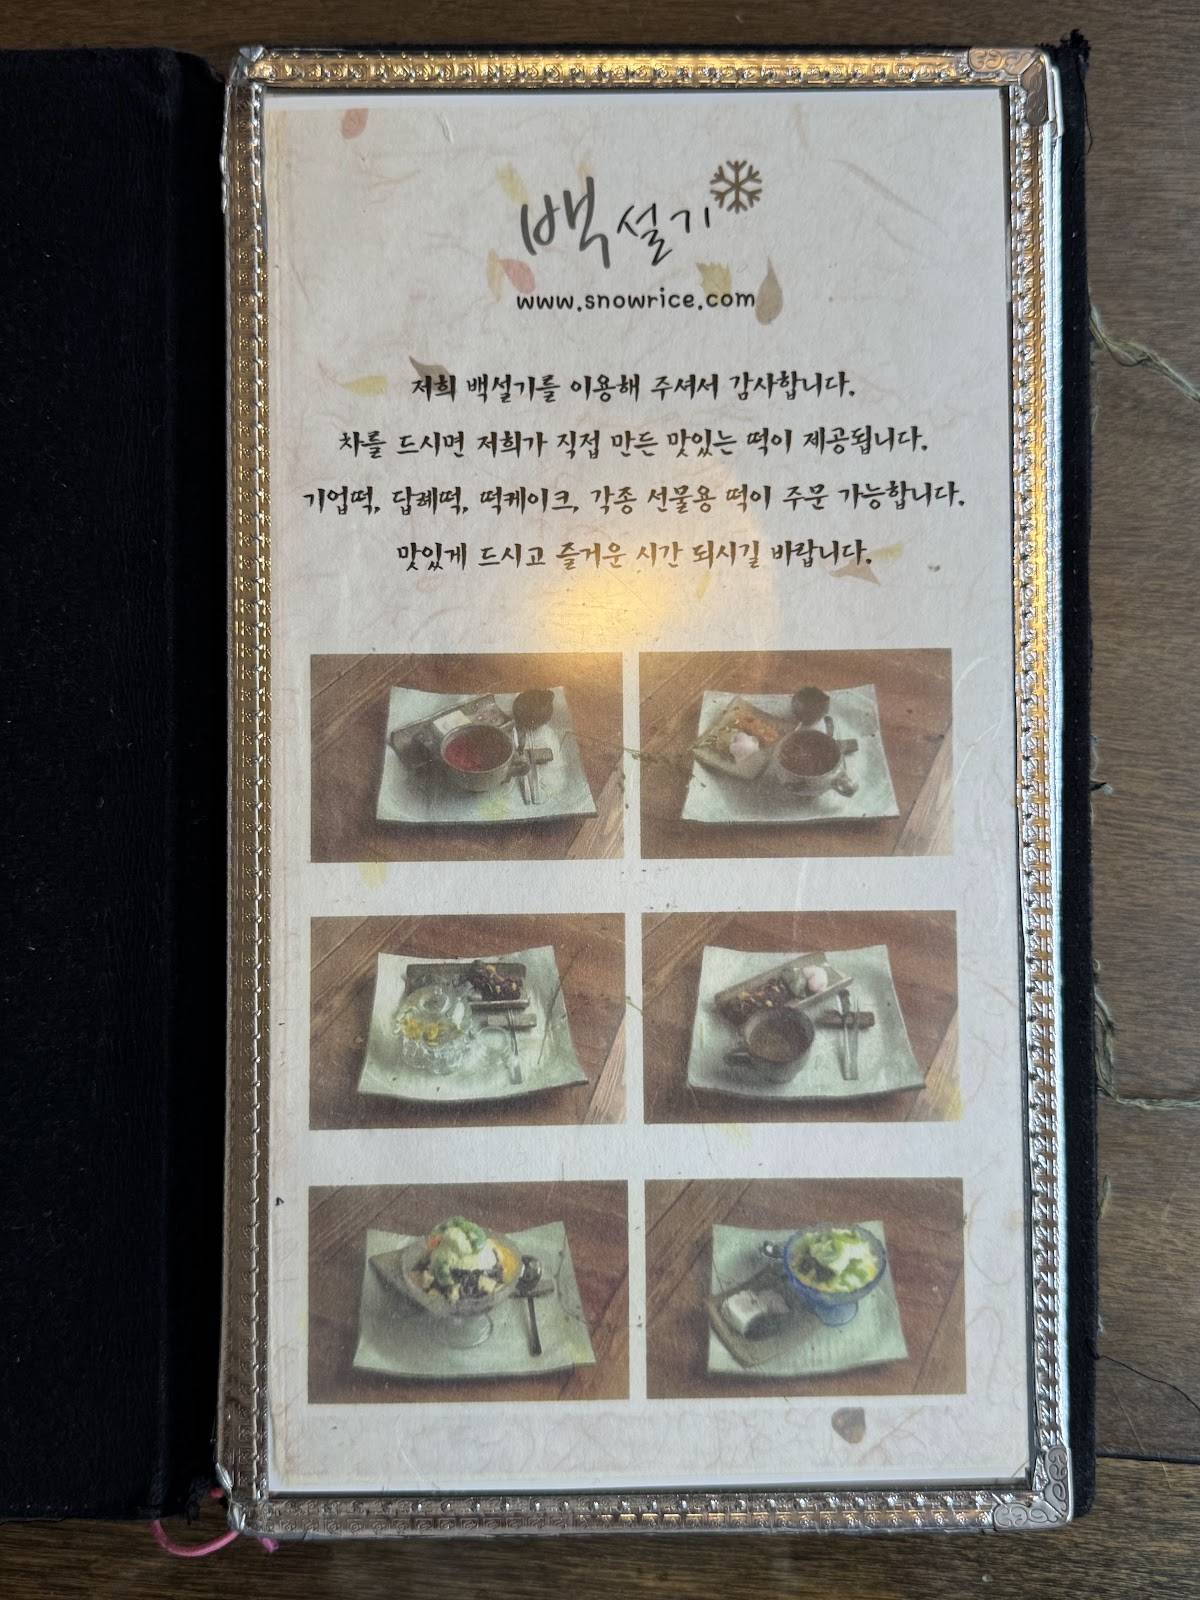 백설기
www.snowrice.com
저희 백설기를 이용해 주셔서 감사합니다.
차를 드시면 저희가 직접 만든 맛있는 떡이 제공됩니다.
기업떡, 답례떡, 떡케이크, 각종 선물용 떡이 주문 가능합니다.
맛있게 드시고 즐거운 시간 되시길 바랍니다.